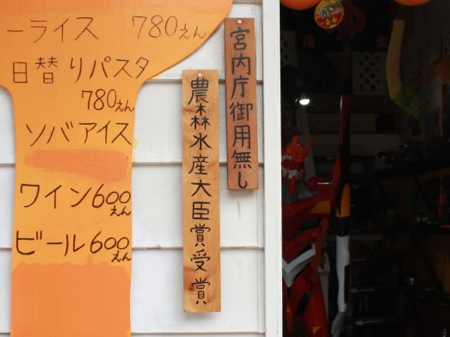 ーライス 780えん
日替りパスタ
780えん
ソバアイス
ワイン600えん
ビール600えん
農森水産大臣賞受賞
宮内庁御用無し